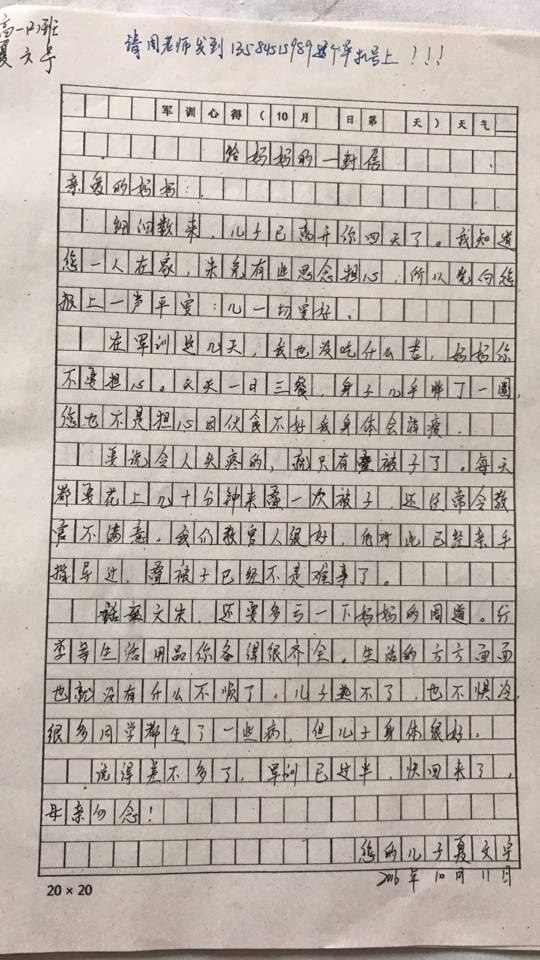 高一(7)班
夏文宇
请周老师发到13584515989这个手机号上！！！
军训心得（10月 日第 天）天气
给妈妈的一封信
亲爱的妈妈：
细细数来，儿子已离开你四天了。我知道
您一人在家，未免有些思念担心，所以先向您
报上一声平安：儿一切安好。
在军训这几天，我也没吃什么苦，妈妈你
不要担心。天天一日三餐，身子几乎胖了一圈，
您也不用担心因伙食不好我身体会消瘦．
要说令人头疼的，就只有叠被子了。每天
都要花上几十分钟来叠一次被子，还经常令教
官不满意。我们教官人很好，他对此已经亲手
指导过，叠被子已经不是难事了。
话至文末，还要多亏一下妈妈的周道。行
李等生活用品你备得很齐全。生活的方方面面
也就没有什么不顺了。儿子热不了，也不惧冷，
很多同学都生了一些病，但儿子身体很好。
说得差不多了，军训已过半，快回来了，
母亲勿念！
您的儿子夏文宇
2016年10月11日
20×20